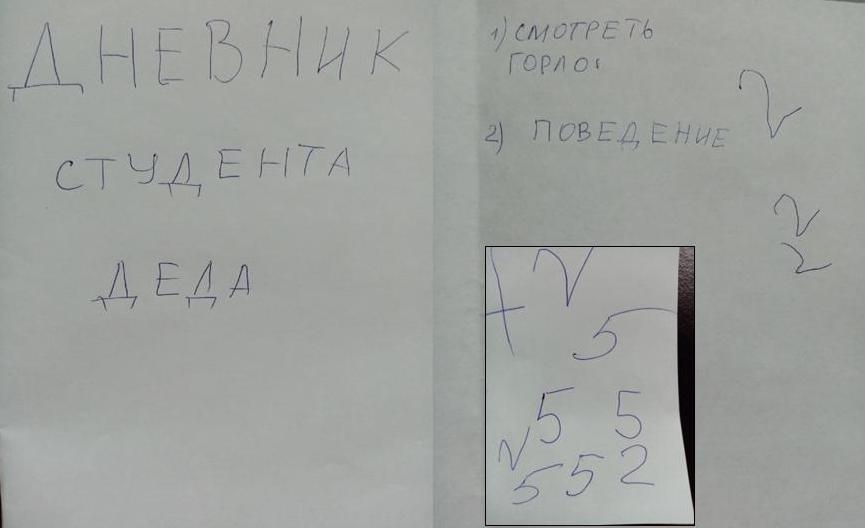 ДНЕВНИК
СТУДЕНТА
ДЕДА
1) СМОТРЕТЬ
ГОРЛО
2) ПОВЕДЕНИЕ
2
2
2
5
5 5
5 5 2